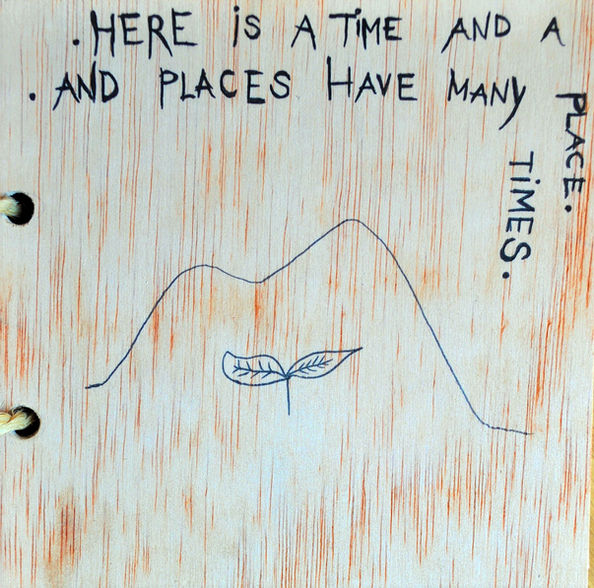 .HERE iS A TiME AND A PLACE.
. AND PLACES HAVE MANY TiMES.